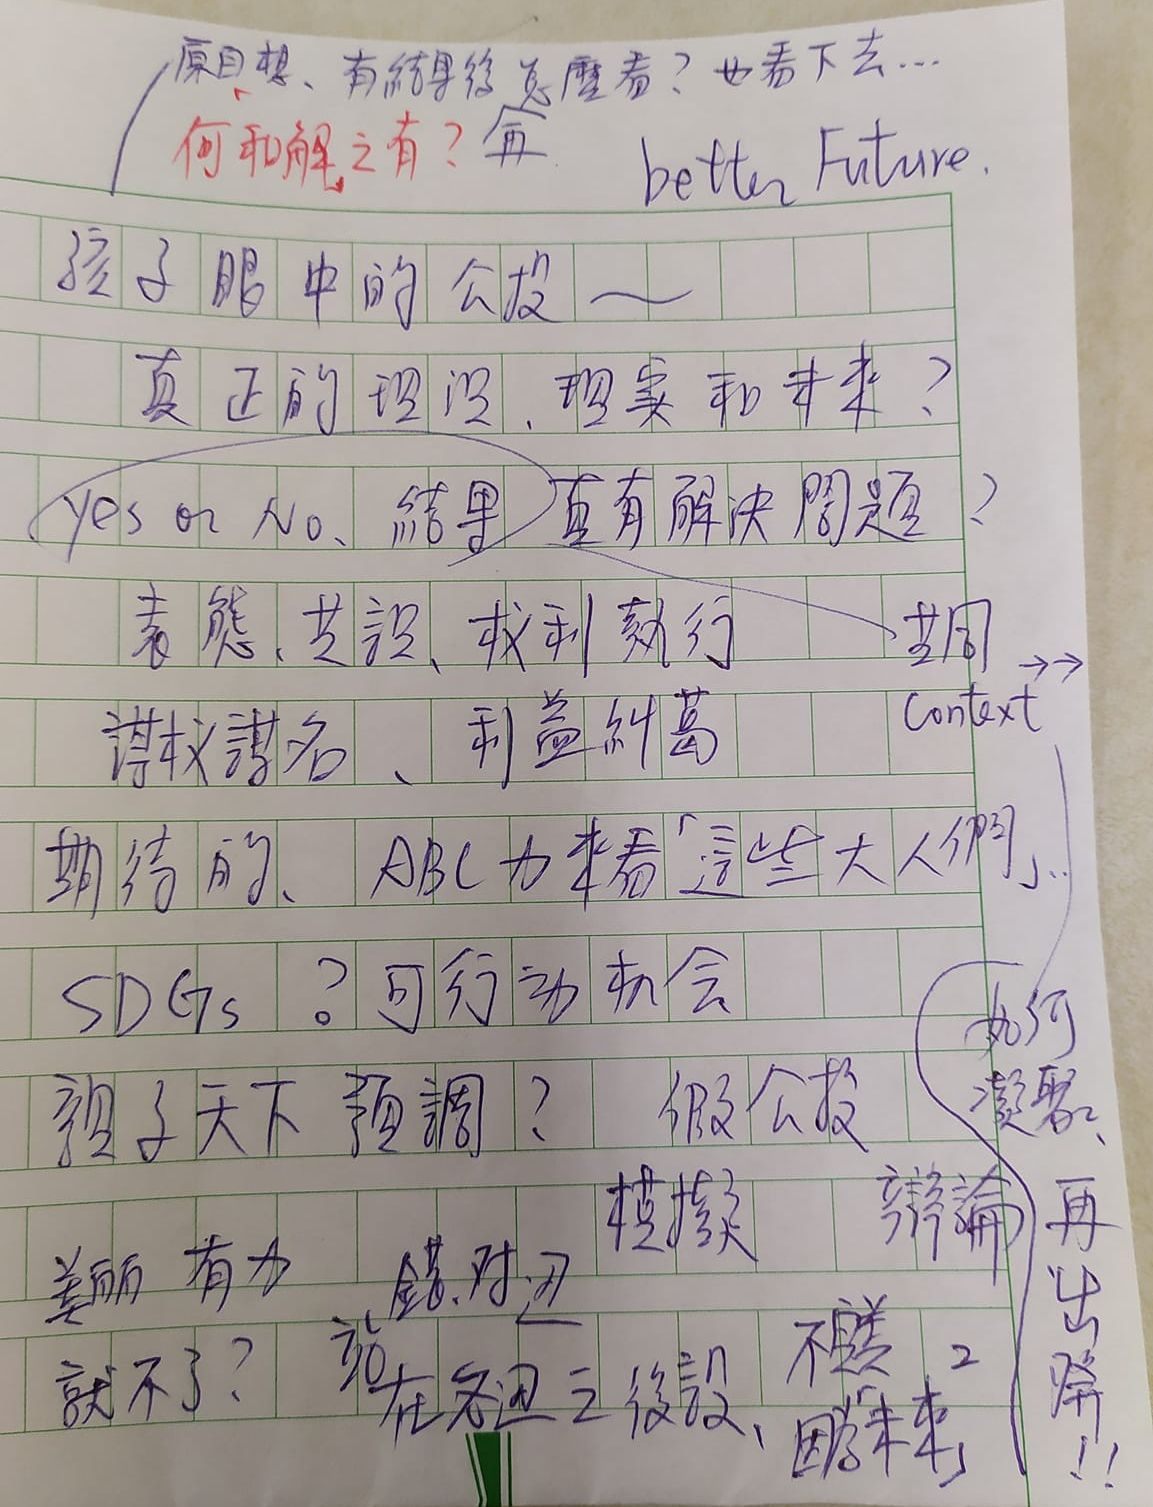 原目想、有結果後怎麼看？也看下去…
何和解之有？再
better Future.
孩子眼中的公投～
真正的理沒、現實和未來？
yes or No、結果 真有解決問題？
表態、共識、权利執行
基周
context →→
謀权謀名、利益糾葛
期待的、ABC力來看「這些大人們」…
SDGs ？可行动机会
如何
凝聚、
再出發!!
親子天下預調？ 假公投
模擬 辯論
美丽有力 錯.对边
就不了？ 站在各边之後設、
不
「未來」